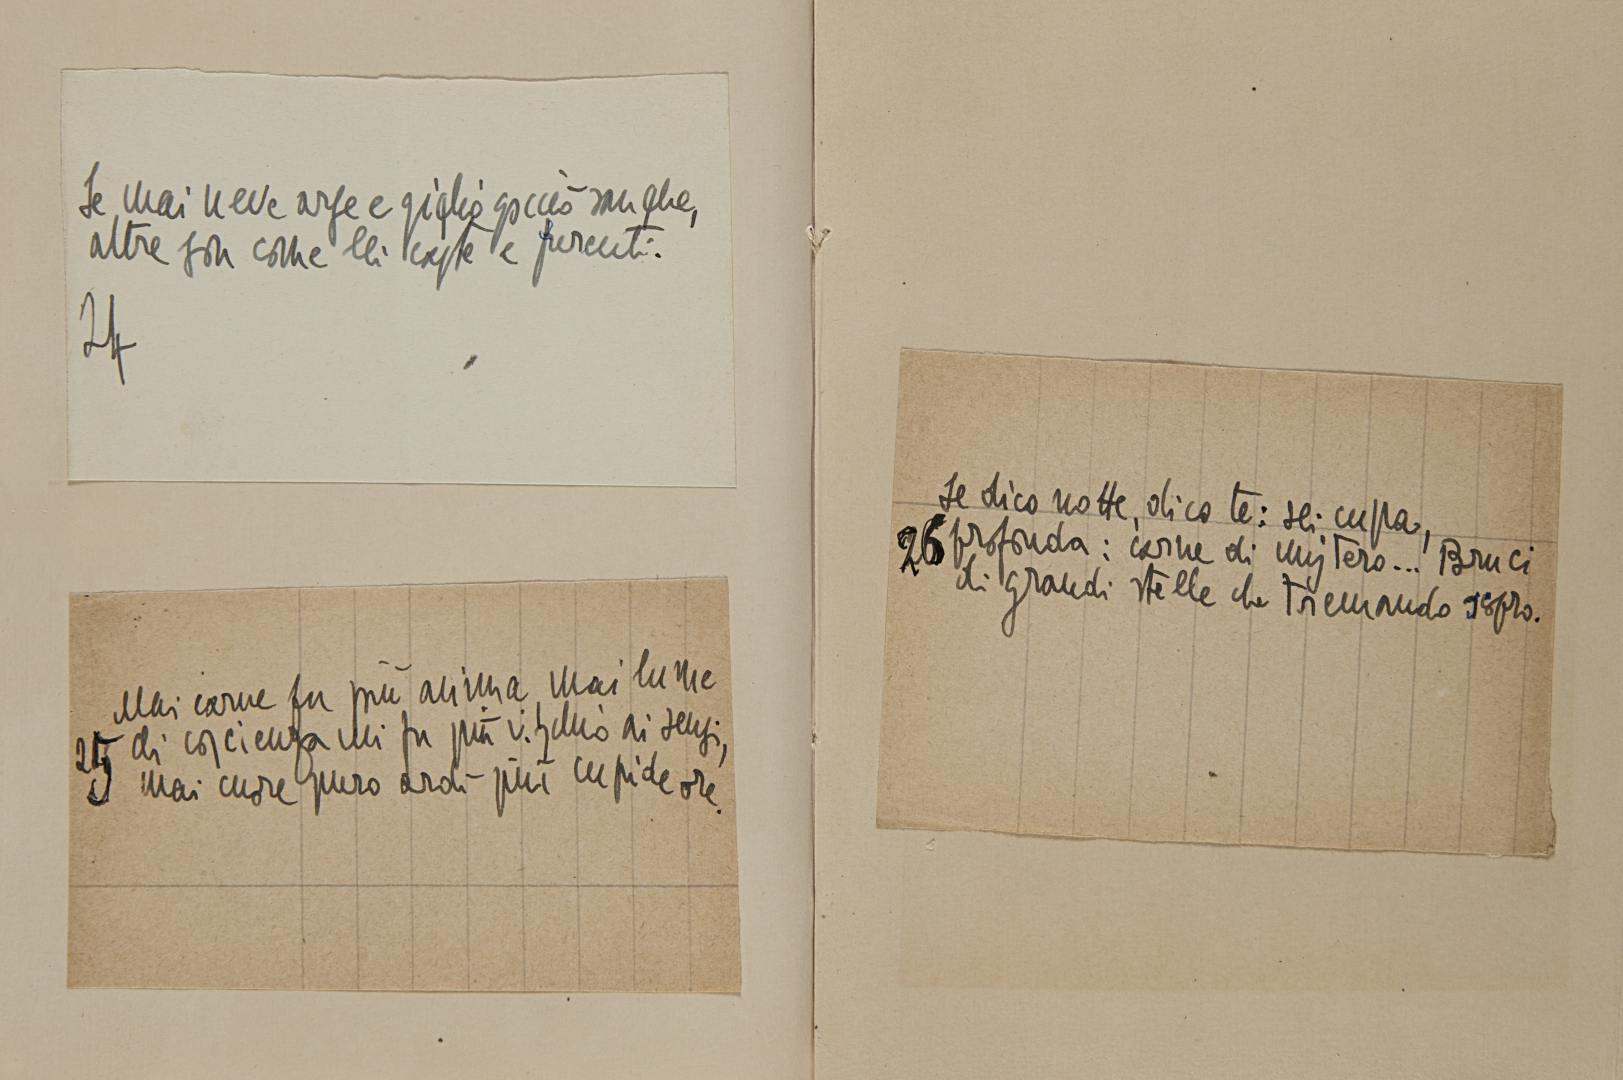 Se mai neve arse e giglio gocciò sangue,
altre son come lei caste e furenti.
24
Mai carne fu più anima, mai lume
25 di coscienza mi fu più vischio ai sensi,
mai cuore puro ardì più cupide ore.
Se dico notte, dico te: sei cupa,
26 profonda: carne di mistero... Bruci
di grandi stelle che tremando